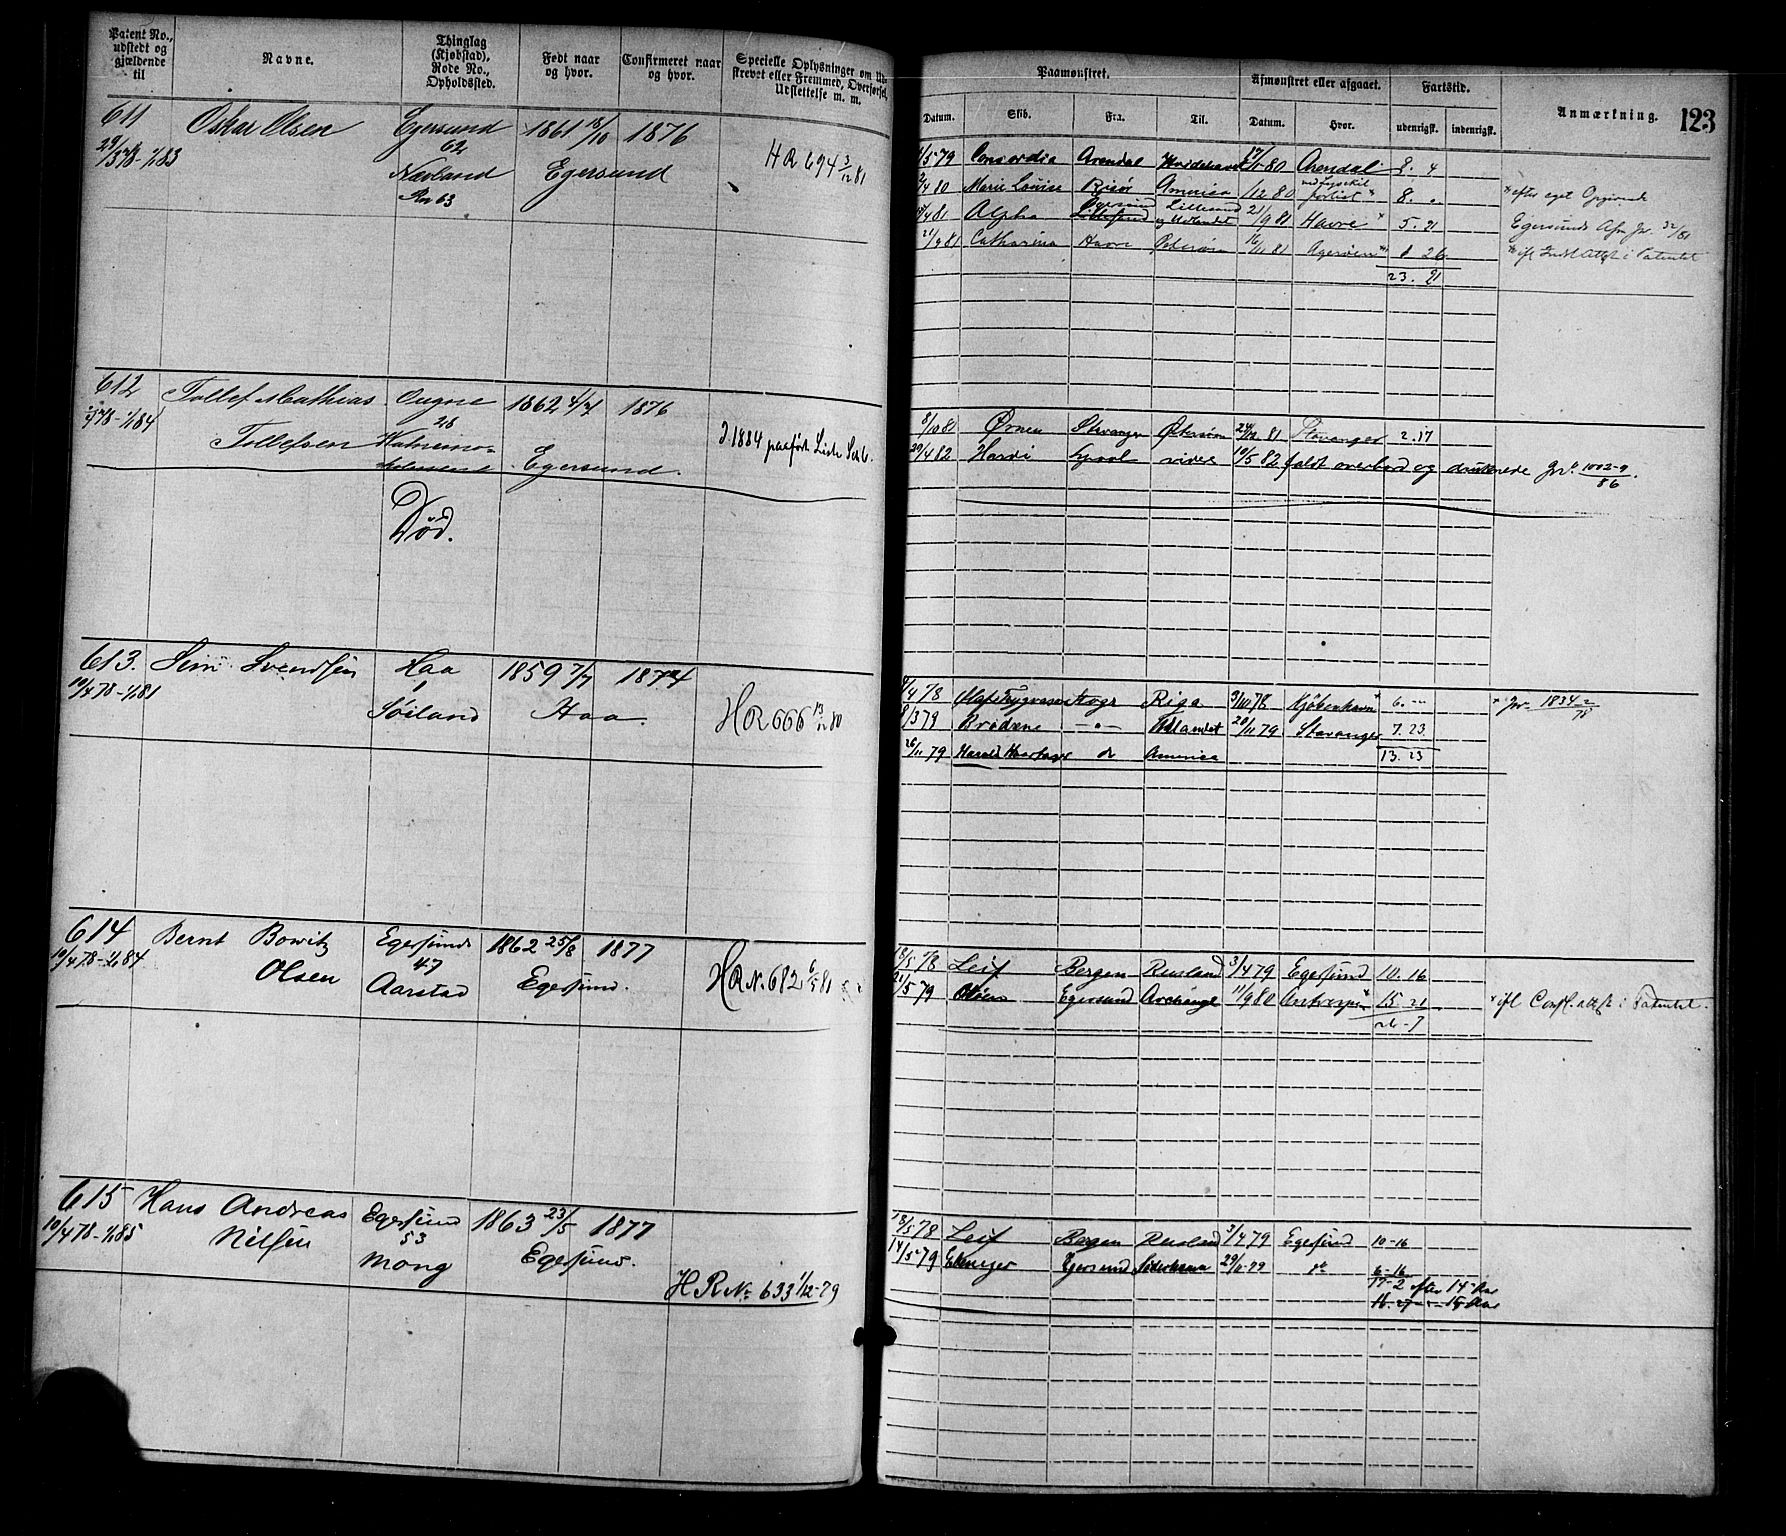 Patent No., udstedt og gjældende til
Navne.
Thinglag (Kjøbstad). Rode No., Opholdssted.
Født naar og hvor.
Confirmeret naar og hvor.
Specielle Oplysninger om Udskrevet eller Fremmed, Overførsel, Udslettelse m. m.
Paamønstret.
Afmønstret eller afgaaet.
Fartstid.
Anmærkning.
123
Datum.
Skib.
Fra.
Til.
Datum.
Hvor.
udenrigsk.
indenrigsk.
611
Oskar Olsen
Egersund
1861 18/10 1876
29/3 78-1/1 83
62
Nævland
Egersund
Rn 63
H R 694 3/12 81
1/5 79 Concordia Arendal 17/11 80 Arendal 2. 4
2/4 80 Marie Louise Risør America /12 80 forlist 8. "
4/81 Alpha Egersund Lillesand og Udlandet 21/9 81 Havre 5. 21
21/9 81 Catharina Havre Østersøen 16/11 81
23. 21
* efter eget Opgivende
Egersunds Afm Jr. 32/81
612
Tollef Mathias
Ougne
1862 4/7 1876
78-1/1 84
28
Tollefsen
Egersund.
J 1884 paaført Liste
Død.
8/10 81 Ørnen Stavanger Østersøen 24/12 81 Stavanger 2. 17
29/4 82 Hardi videre 19/5 82 faldt overbord og druknede Jr. 1002-9/86.
613.
Svendsen
Haa
1859 7/7 1874
10/4 78-1/1 81
1
Søiland
Haa
H R 666 13/12 80
4/78 Olaf Trygvason Riga 3/10 78 Kjøbenhavn 6. --
* Jr. 1834-2/78
8/3 79 Brødrene -"- Udlandet 20/11 79 Stavanger 7. 23
26/11 79 Harald Haarfager do America
13. 23
614
Bernt Bowitz
Egersund
1862 25/8 1877
10/4 78-1/1 84
Olsen
47
Aarstad
Egersund.
H R No 682 6/5 81
18/5 78 Leif Bergen Rusland 3/4 79 Egersund 10. 16
21/5 79 Egersund Archangel 11/9 80 Antwerpen 15. 21
26-7
* ifl Consl. attest i Patentet.
615
Hans Andreas
Egersund
1863 23/5 1877
10/4 78-1/1 85
Nilsen
53
Mong
Egersund.
H R No 633 1/12-79
18/5 78 Leif Bergen Rusland 3/4 79 Egersund 10-16
14/5 79 Egersund Söderhamn 29/11-79 do 6-16
17-2 efter 14 Aar
16. 27 - " - 15 Aar